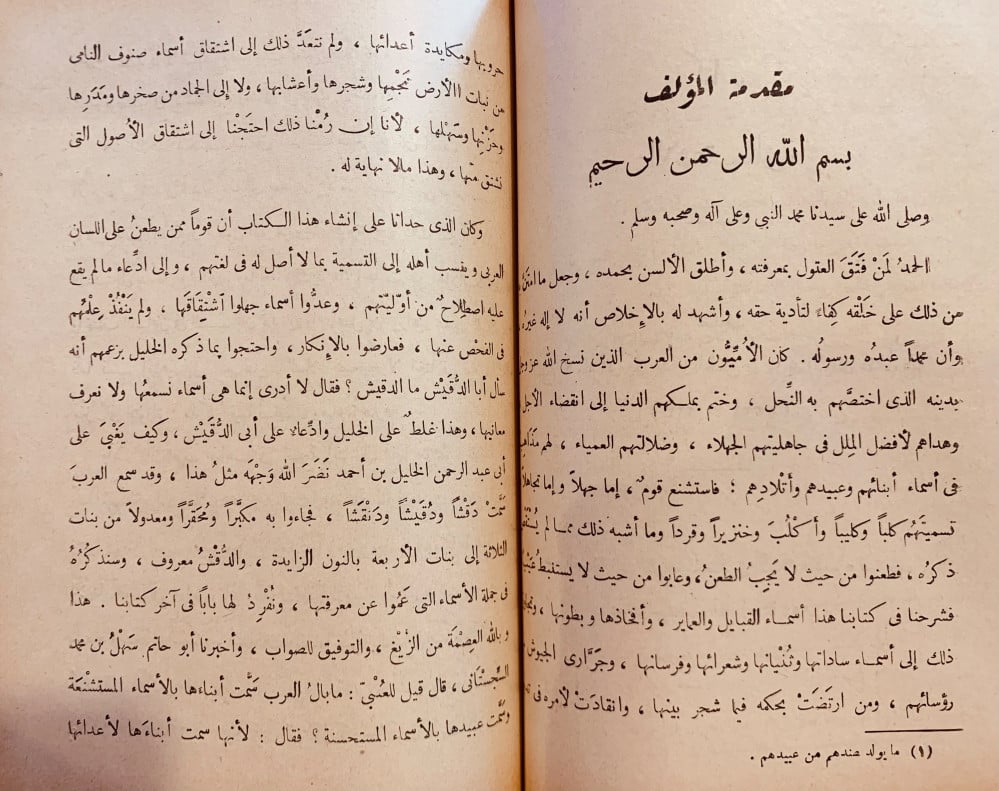 مقدمة المؤلف
بسم الله الرحمن الرحيم
وصلى الله على سيدنا محمد النبي وعلى آله وصحبه وسلم .
الحمدُ لمَنْ فَتَقَ العقول بمعرفته ، وأطلق الألسن بحمده ، وجعل ما امتَنَّ
من ذلك على خَلْقه كِفاءً لتأدية حقه ، وأشهد له بالإخلاص أنه لا إله غيرُه
وأن محمداً عبدُه ورسولُه . كان الأمِّيُّون من العرب الذين نسخ الله عز وجل
بدينه الذى اختصَّهم به النِّحل ، وختم بملكهم الدنيا إلى انقضاء الأجل
وهداهم لأفضل المِلل فى جاهليتهم الجهلاء ، وضلالتهم العمياء ، لهم مَذَاهب
فى أسماء أبنائهم وعبيدهم وأَتْلادِهم ؛ فاستشنع قومٌ ، إما جهلاً وإما تجاهلاً
تسميتَهُم كلباً وكليباً وأكْلُبَ وخنزيراً وقرداً وما أشبه ذلك ممالم
ذكرُه ، فطعنوا من حيث لا يَجِبُ الطعنُ ، وعابوا من حيث لا يستنبطُ
فشرحنا فى كتابنا هذا أسمـاء القبايل والعماير ، وأفخاذها وبطونها ،
ذلك إلى أسمـاء ساداتها وثُنْيانها وشعرائها وفرسانها ، وجَرَّارى الجيوش
رؤسائهم ، ومن ارتَضَتْ بحكمه فيما شجر بينها ، وانقادَتْ لأمره فى
(١) ما يولد عندهم من عبيدهم .
حروبها ومكايدة أعدائها ، ولم نتعَدَّ ذلك إلى اشتقاق أسماء صنوف النامى
من نبات الأرض نَجْمِها وشجرها وأعشابها ، ولا إلى الجماد من صخرها ومَدَرِها
وحَزْنِها وسَهْلها ، لأنا إن رُمْنا ذلك احتَجْنا إلى اشتقاق الأصول التى
نشتق منها ، وهذا مالا نهاية له .
وكان الذى حدانا على إنشاء هذا الكتاب أن قوماً ممن يطعنُ على اللسان
العربى وينسب أهله إلى التسمية بما لا أصل له فى لغتهم ، وإلى ادِّعاء مالم يقع
عليه اصطلاحٌ من أوّليّتهم ، وعدُّوا أسماء جهلوا اشْتِقَاقَهَا ، ولم يَنْفُذْ عِلْمُهم
فى الفحْص عنها ، فعارضوا بالإنكار ، واحتجوا بما ذكره الخليل بزعمهم أنه
سأل أبا الدُّقَيْش ما الدقيش ؟ فقال لا أدرى إنما هى أسماء نسمعُها ولا نعرف
معانيها ، وهذا غلطٌ على الخليل وادِّعاءٌ على أبى الدُّقَيْش ، وكيف يَغْبَى على
أبى عبد الرحمن الخليل بن أحمد نَضَّرَ الله وَجْهَه مثلُ هذا ، وقد سمع العربَ
سَمَّتْ دَقْشًا ودُقَيْشًا ودَنْقَشًا ، فجاءوا به مكبَّراً ومُحَقَّراً ومعدولاً من بنات
الثلاثة إلى بنات الأربعة بالنون الزايدة ، والدُّقْشُ معروف ، وسنذكُرُهُ
فى جملة الأسماء التى عَمُوا عن معرفتها ، ونُفْرِدُ لها باباً فى آخر كتابنا . هذا
وبالله العِصْمَة من الزَّيْغ ، والتوفيق للصواب ، وأخبرنا أبو حاتم سَهْلُ بن محمد
السِّجِسْتَانى ، قال قيل للعُتْبىّ : مابالُ العرب سَمَّت أبناءَها بالأسماء المستشنَعَة
وسَمَّت عبيدها بالأسماء المستحسنة ؟ فقال : لأنها سمت أبناءَها لأعدائها